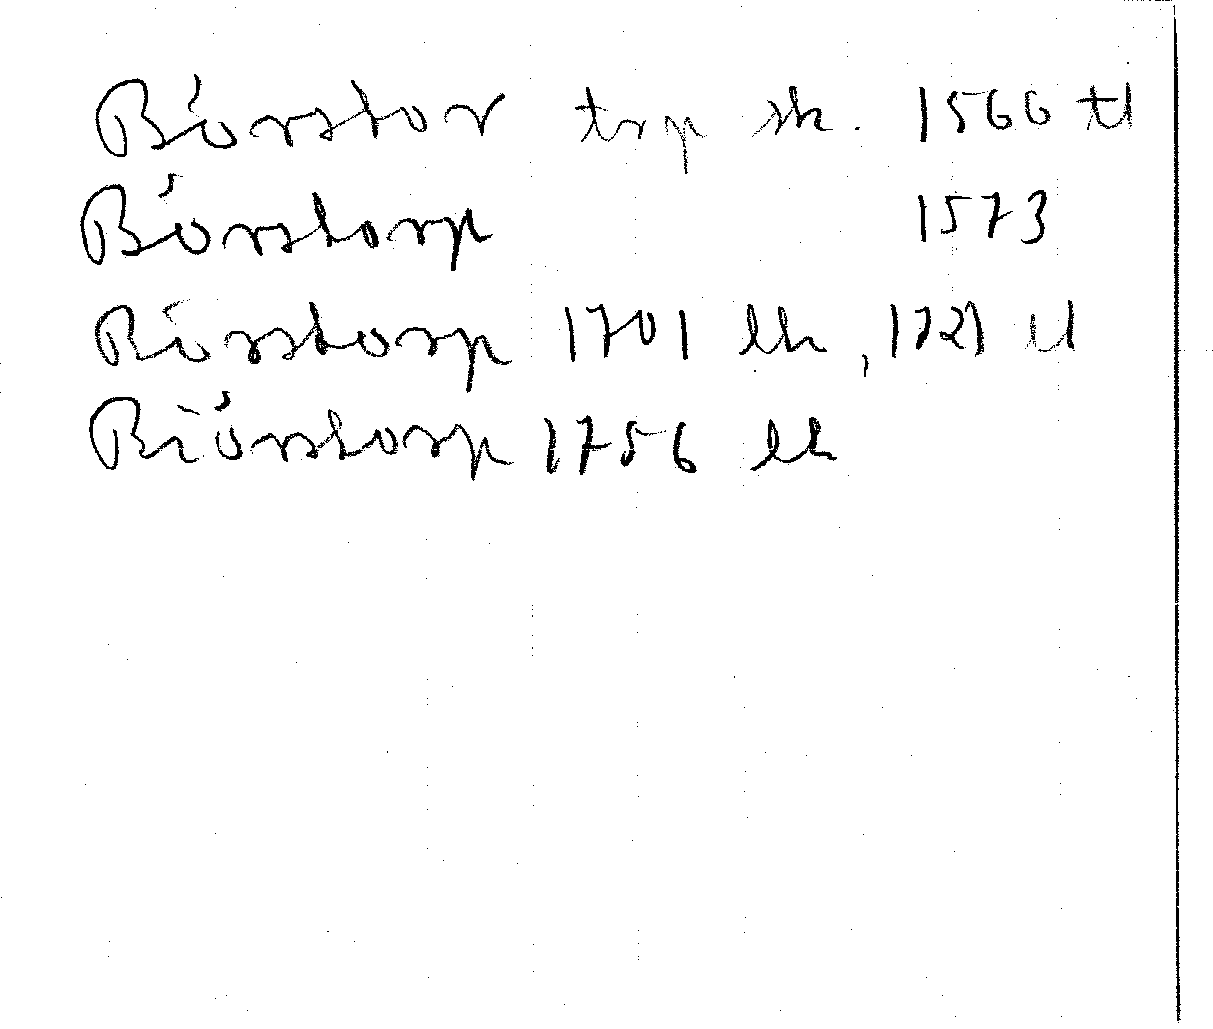 Börstor trp sk. 1566 tl
Börstorp 1573
Börstorp 1701 lk, 1721 ll
Biörstorp 1756 lk